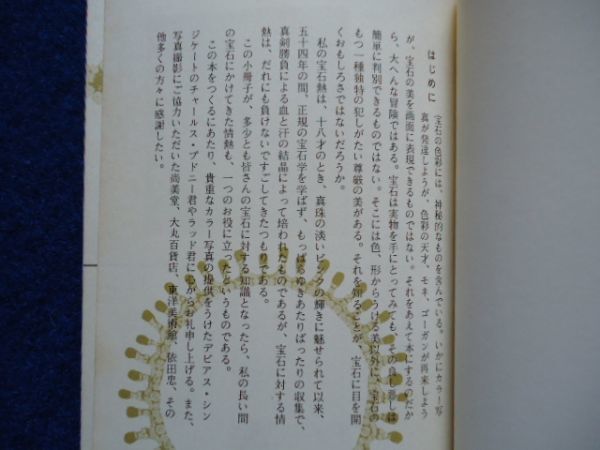 はじめに
宝石の色彩には、神秘的なものを含んでいる。いかにカラー写
真が発達しようが、色彩の天才、モネ、ゴーガンが再来しよう
が、宝石の美を画面に表現できるものではない。それをあえて本にするのだか
ら、大へんな冒険ではある。宝石は実物を手にとってみても、その良し悪しは
簡単に判別できるものではない。そこには色、形からうける美以外に、宝石の
もつ一種独特の犯しがたい尊厳の美がある。それを知ることが、宝石に目を開
くおもしろさではないだろうか。
私の宝石熱は、十八才のとき、真珠の淡いピンクの輝きに魅せられて以来、
五十四年の間、正規の宝石学を学ばず、もっぱらゆきあたりばったりの収集で、
真剣勝負による血と汗の結晶によって培われたものであるが、宝石に対する情
熱は、だれにも負けないですごしてきたつもりである。
この小冊子が、多少とも皆さんの宝石に対する知識となったら、私の長い間
の宝石にかけてきた情熱も、一つのお役に立ったというものである。
この本をつくるにあたり、貴重なカラー写真の提供をうけたデビアス・シン
ジケートのチャールス・ブドニー君やラッド君に心からお礼申し上げる。また、
写真撮影にご協力いただいた尚美堂、大丸百貨店、東洋美術館、依田忠、その
他多くの方々に感謝したい。